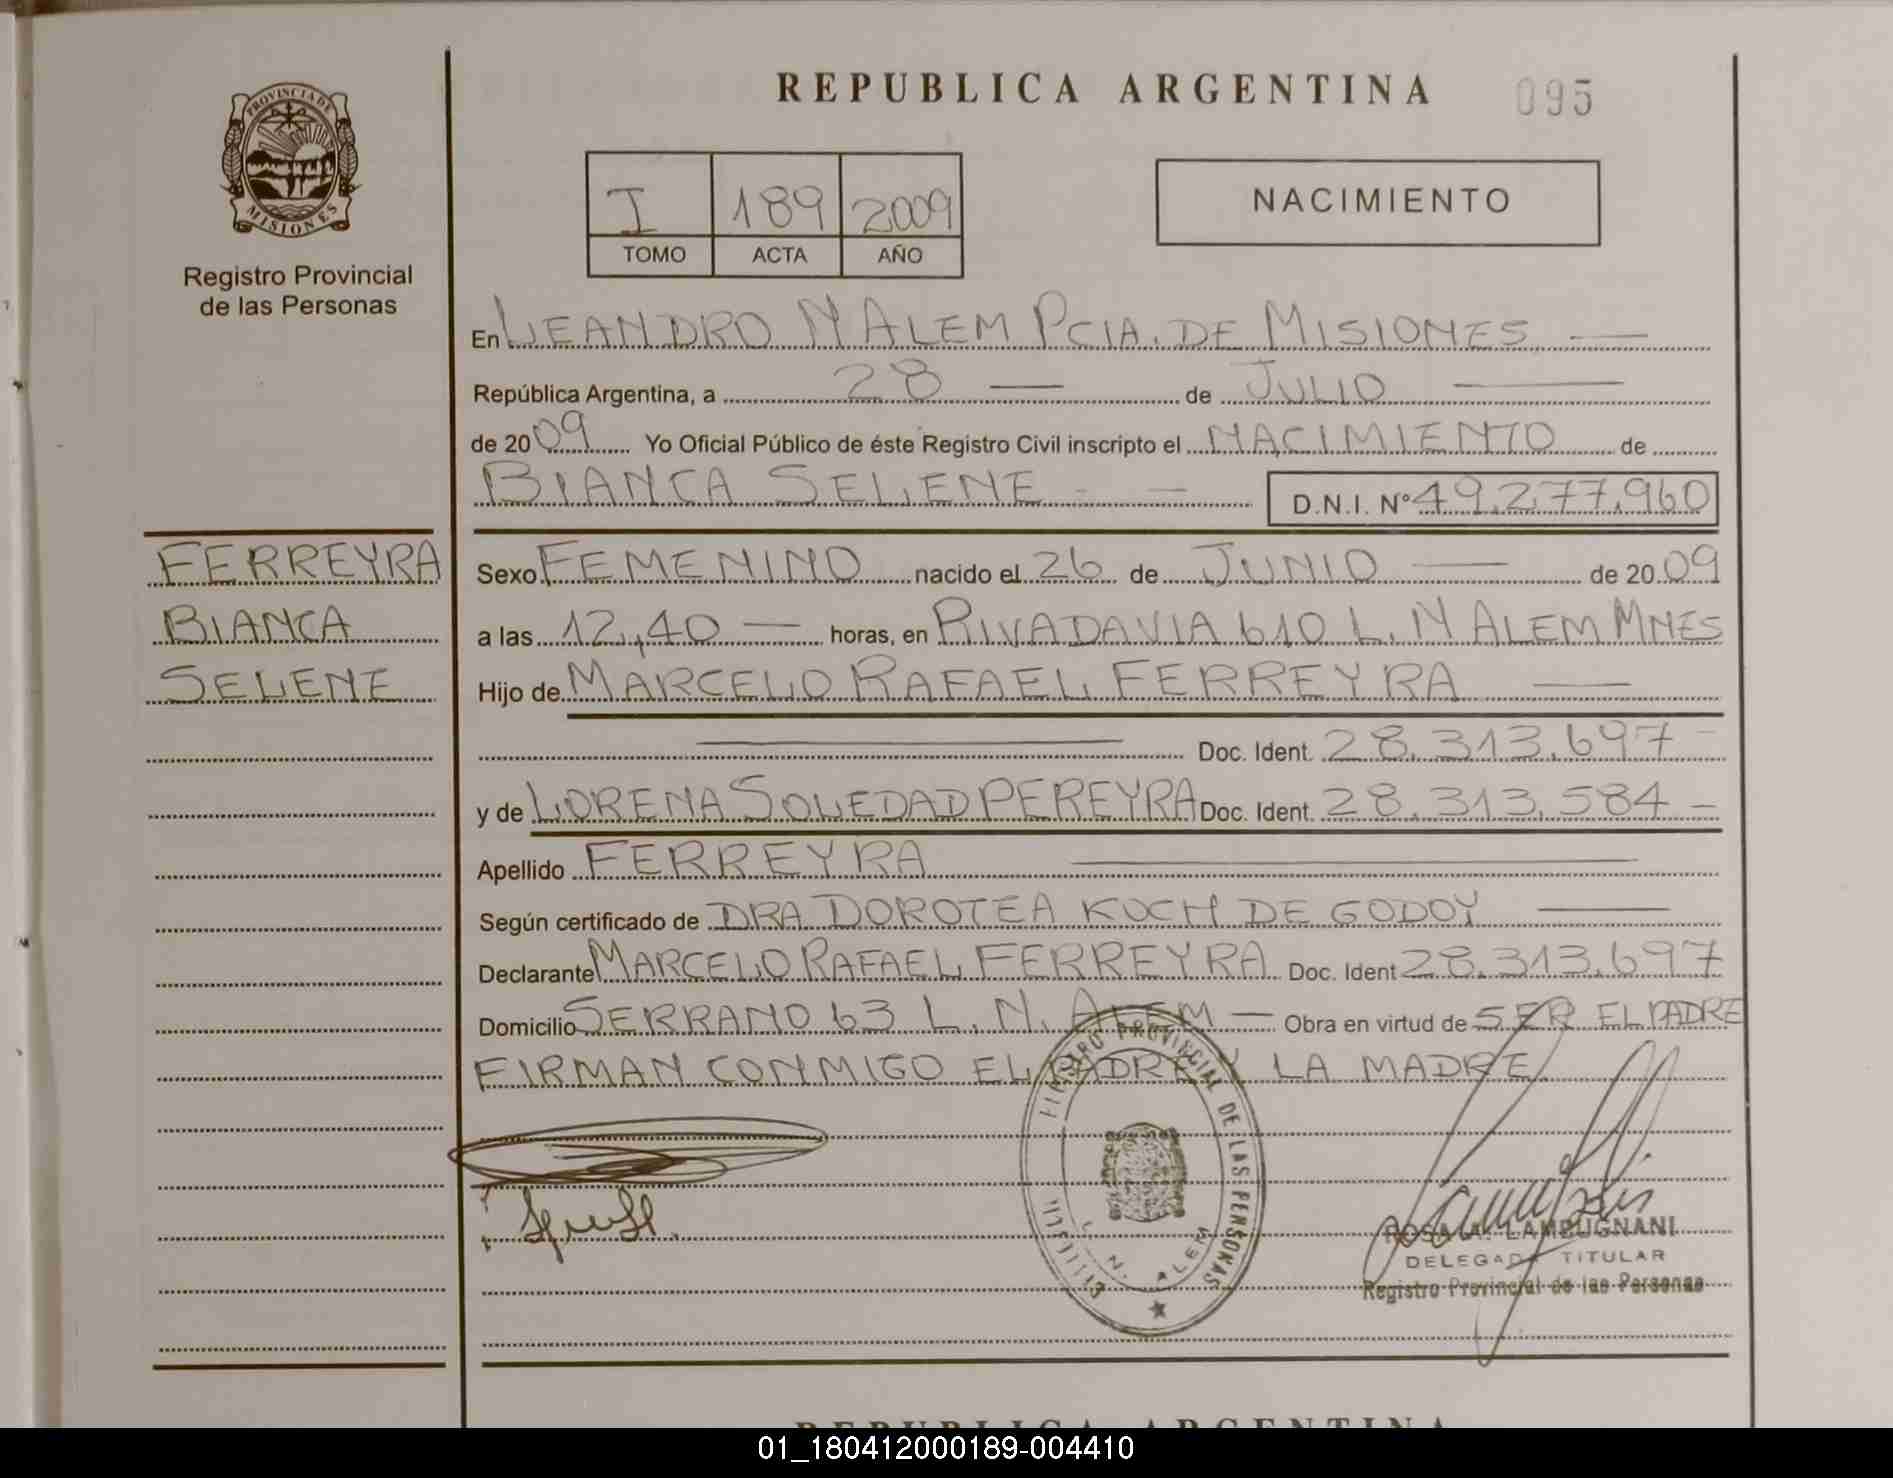 REPUBLICA ARGENTINA 095
PROVINCIA DE
MISIONES
Registro Provincial
de las Personas
I 189 2009
TOMO ACTA AÑO
NACIMIENTO
En LEANDRO N ALEM PCIA. DE MISIONES
República Argentina, a 28 de JULIO
de 2009 Yo Oficial Público de éste Registro Civil inscripto el NACIMIENTO de
BIANCA SELENE D.N.I. Nº 49.277.960
FERREYRA
BIANCA
SELENE
Sexo FEMENINO nacido el 26 de JUNIO de 2009
a las 12,40 horas, en RIVADAVIA 610 L. N ALEM MNES
Hijo de MARCELO RAFAEL FERREYRA
Doc. Ident. 28.313.697
y de LORENA SOLEDAD PEREYRA Doc. Ident. 28.313.584
Apellido FERREYRA
Según certificado de DRA DOROTEA KOCH DE GODOY
Declarante MARCELO RAFAEL FERREYRA Doc. Ident 28.313.697
Domicilio SERRANO 63 L. N. ALEM Obra en virtud de SER EL PADRE
FIRMAN CONMIGO EL PADRE Y LA MADRE
PROVINCIAL DE LAS PERSONAS
L. N. ALEM
ROSA A. LAMBUGNANI
DELEGADA TITULAR
Registro Provincial de las Personas
REPUBLICA ARGENTINA
01_180412000189-004410